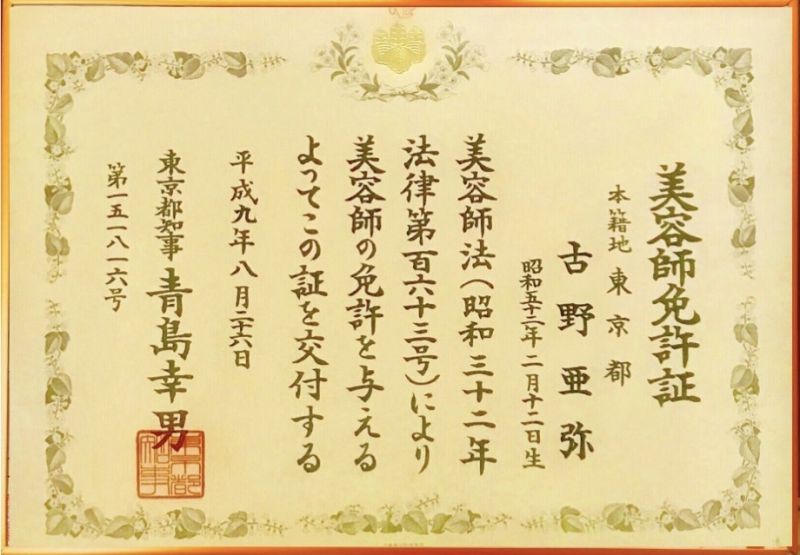 美容師免許証
本籍地 東京都
古野亜弥
昭和五十二年二月十二日生
美容師法(昭和三十二年
法律第百六十三号)により
美容師の免許を与える
よってこの証を交付する
平成九年八月二十六日
東京都知事 青島幸男
第一五一八一六号